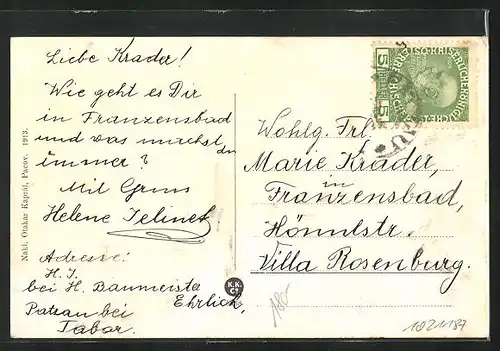 Liebe Krader!
Wie geht es Dir
in Franzensbad
und was machst du
immer?
Mit Gruss
Helene Jelinek
Adresse:
H. J.
bei H. Baumeister
Ehrlich,
Patzau bei
Tabor.
Nakl. Otakar Kapríl, Pacov. 1913.
K.K.
5 HELLER 5
Wohlg. Frl.
Marie Krader,
in
Franzensbad,
Villa Rosenburg.
180-
1021187